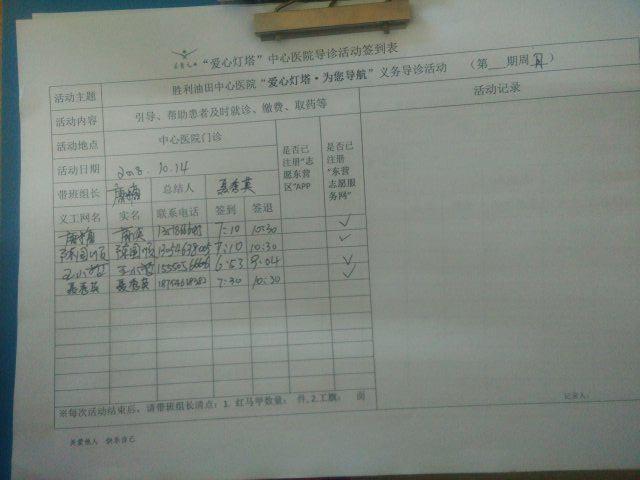 "爱心灯塔"中心医院导诊活动签到表
活动主题 胜利油田中心医院"爱心灯塔·为您导航"义务导诊活动 （第 期周日）
活动内容 引导、帮助患者及时就诊、缴费、取药等 活动记录
活动地点 中心医院门诊
活动日期 2018.10.14
是否已注册"志愿东营区"APP
是否已注册"东营志愿服务网"
带班组长 总结人 聂秀英
义工网名 实名 联系电话 签到 签退
7:10 10:30 ✓
陈国顺 陈国顺 7:10 10:30 ✓
王小 王小 6:53 9:04 ✓
聂秀英 聂秀英 7:30 10:30 ✓
※每次活动结束后，请带班组长清点：1. 红马甲数量： 件，2.工旗： 面
记录人：
关爱他人 快乐自己